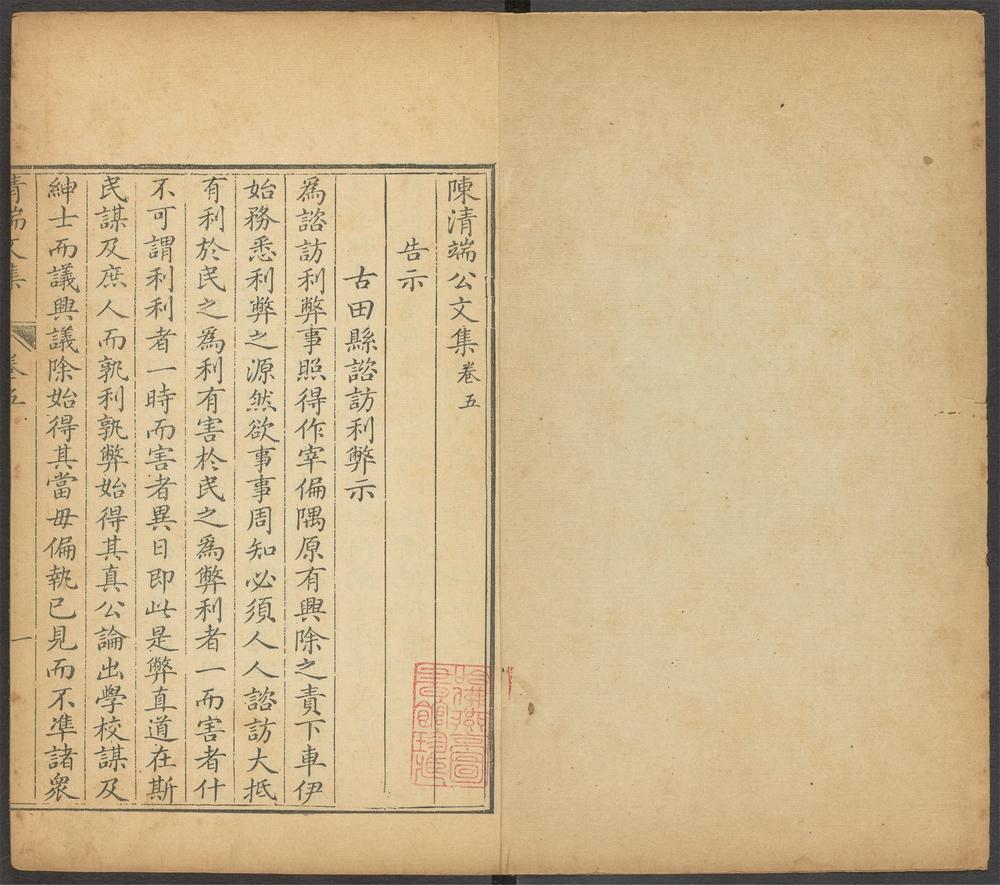 陳清端公文集卷五
告示
古田縣諮訪利弊示
為諮訪利弊事照得作宰偏隅原有興除之責下車伊
始務悉利弊之源然欲事事周知必須人人諮訪大抵
有利於民之為利有害於民之為弊利者一而害者什
不可謂利利者一時而害者異日即此是弊直道在斯
民謀及庶人而孰利孰弊始得其真公論出學校謀及
紳士而議興議除始得其當毋偏執已見而不準諸衆
清端文集 卷五 一
哈佛燕京圖書館珍藏